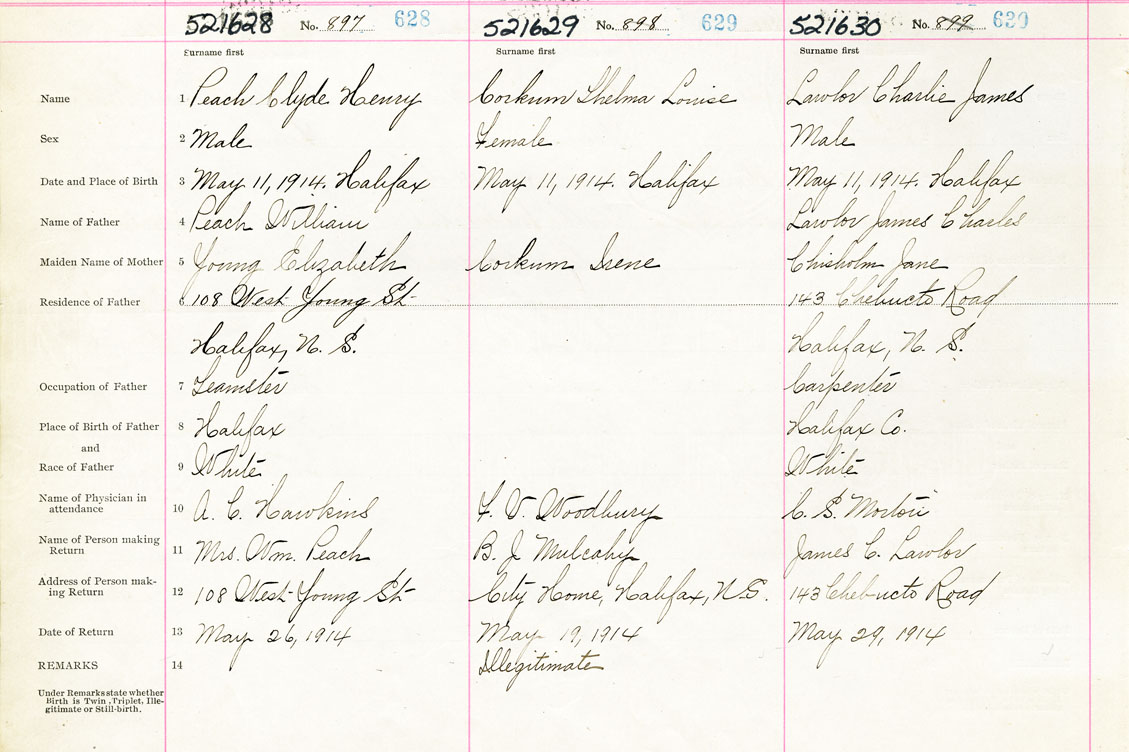 521628 No. 897 628 521629 No. 898 629 521630 No. 899 630
Surname first Surname first Surname first
Name 1 Peach Clyde Henry Corkum Thelma Louise Lawlor Charlie James
Sex 2 Male Female Male
Date and Place of Birth 3 May 11, 1914. Halifax May 11, 1914. Halifax May 11, 1914. Halifax
Name of Father 4 Peach William Lawlor James Charles
Maiden Name of Mother 5 Young Elizabeth Corkum Irene Chisholm Jane
Residence of Father 6 108 West Young St 143 Chebucto Road
Halifax, N. S. Halifax, N. S.
Occupation of Father 7 Teamster Carpenter
Place of Birth of Father 8 Halifax Halifax Co.
and
Race of Father 9 White White
Name of Physician in
attendance 10 A. C. Hawkins F. V. Woodbury C. S. Morton
Name of Person making
Return 11 Mrs. Wm. Peach B. J Mulcahy James C. Lawlor
Address of Person mak-
ing Return 12 108 West Young St City Home, Halifax, N.S. 143 Chebucto Road
Date of Return 13 May 26, 1914 May 19, 1914 May 29, 1914
REMARKS 14 Illegitimate
Under Remarks state whether
Birth is Twin, Triplet, Ille-
gitimate or Still-birth.